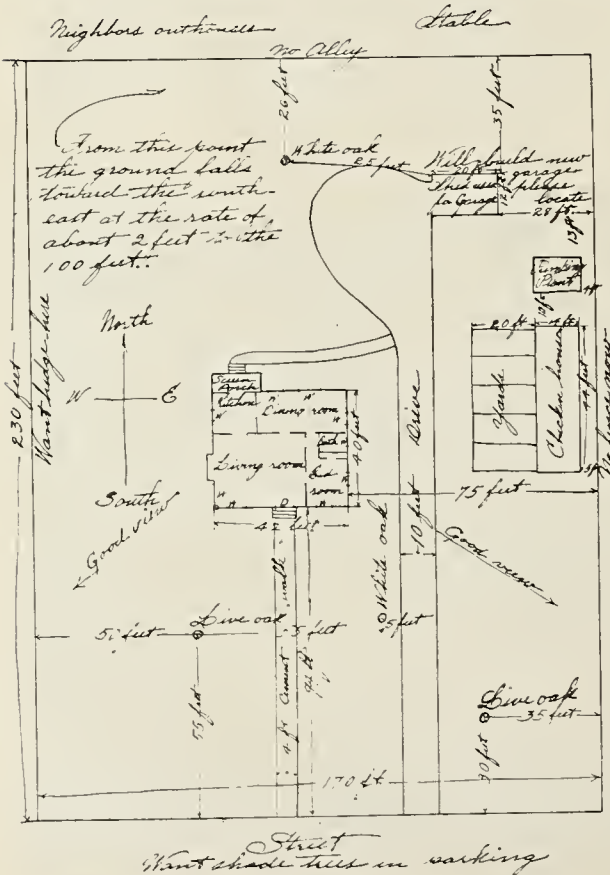 Neighbors outhouses
Stable
No Alley
26 feet
35 feet
White oak
25 feet
From this point
the ground falls
toward the south-
east at the rate of
about 2 feet in the
100 feet.
Will build new
garage
please
locate
20 ft
Shed used
for Garage
12 ft
28 ft.
13 ft
Plant
4 ft
12 ft
20 ft
14 ft
Yards
Chicken houses
44 feet
5 ft
No fence now
230 feet
Want hedge here
North
W
E
South
Good view
Screen
Porch
Kitchen
Dining room
Living room
Bath
Bed
room
40 feet
42 feet
D
75 feet
Drive
10 feet
Good view
White oak
5 feet
Live oak
5 feet
Cement walk
4 ft
55 feet
Live oak
35 feet
30 feet
170 ft.
Street
Want shade trees in parking